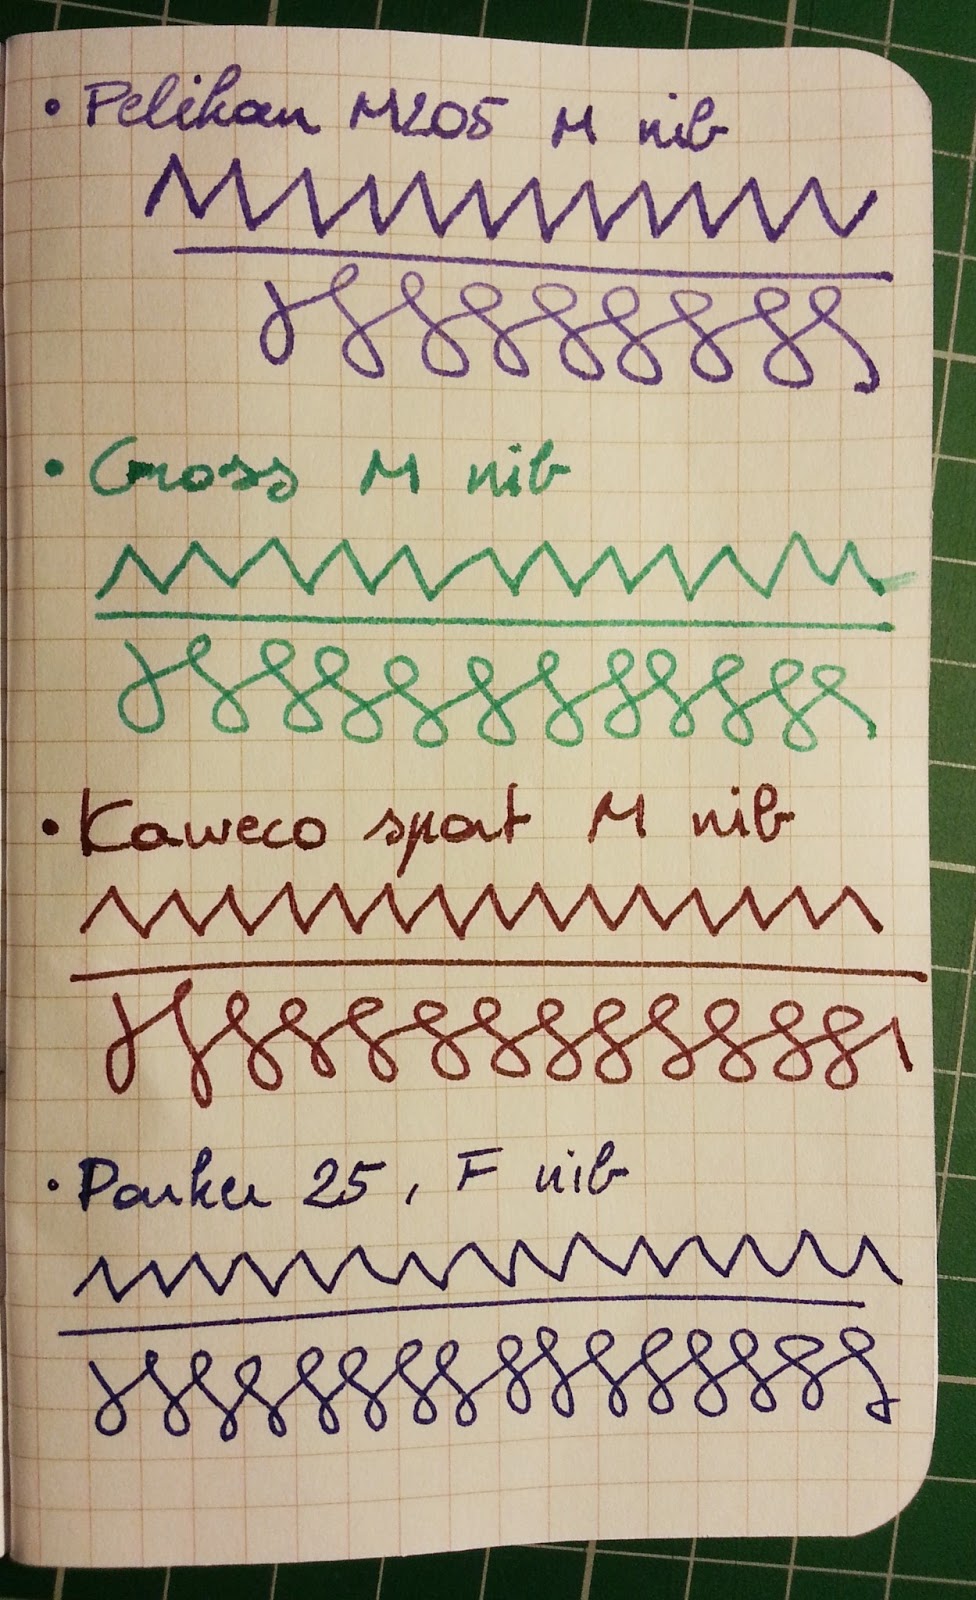 • Pelikan M205 M nib
• Cross M nib
• Kaweco sport M nib
• Parker 25, F nib